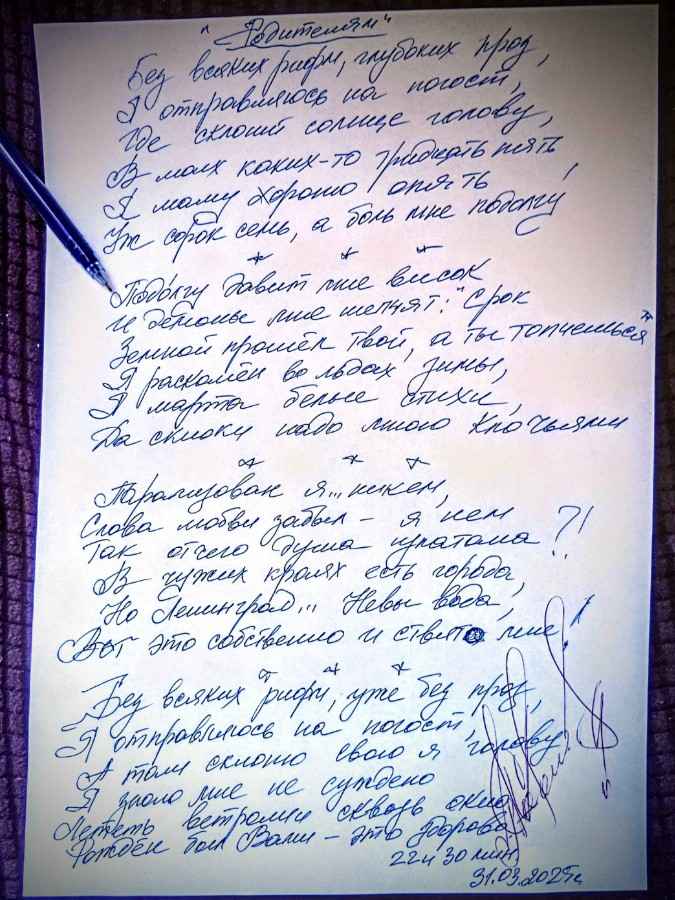 "Родителям"
Без всяких рифм, глубоких проз,
Я отправляюсь на погост,
Где склонит солнце голову,
В моих каких-то тридцать пять,
Я маму хороню опять
Уж сорок семь, а боль мне подолгу
* * *
Подолгу давит мне висок
И демоны мне шепчут: "Срок
Земной прошёл твой, а ты топчешься"
Я расколен во льдах зимы,
Я марта белые стихи,
Да снимки надо мною клочьями
* * *
Парализован я... никем,
Слова любви забыл - я нем
Так отчего душа измотана?!
В чужих краях есть города,
Но Ленинград... Невы вода,
Вот это собственно и свято мне!
* * *
Без всяких рифм, уже без проз,
Я отправляюсь на погост,
А там склоню свою я голову
Я знаю мне не суждено
Лететь ветрами сквозь окно
Рождён был Вами - это здорово
22ч 30 мин
31.03.2025г